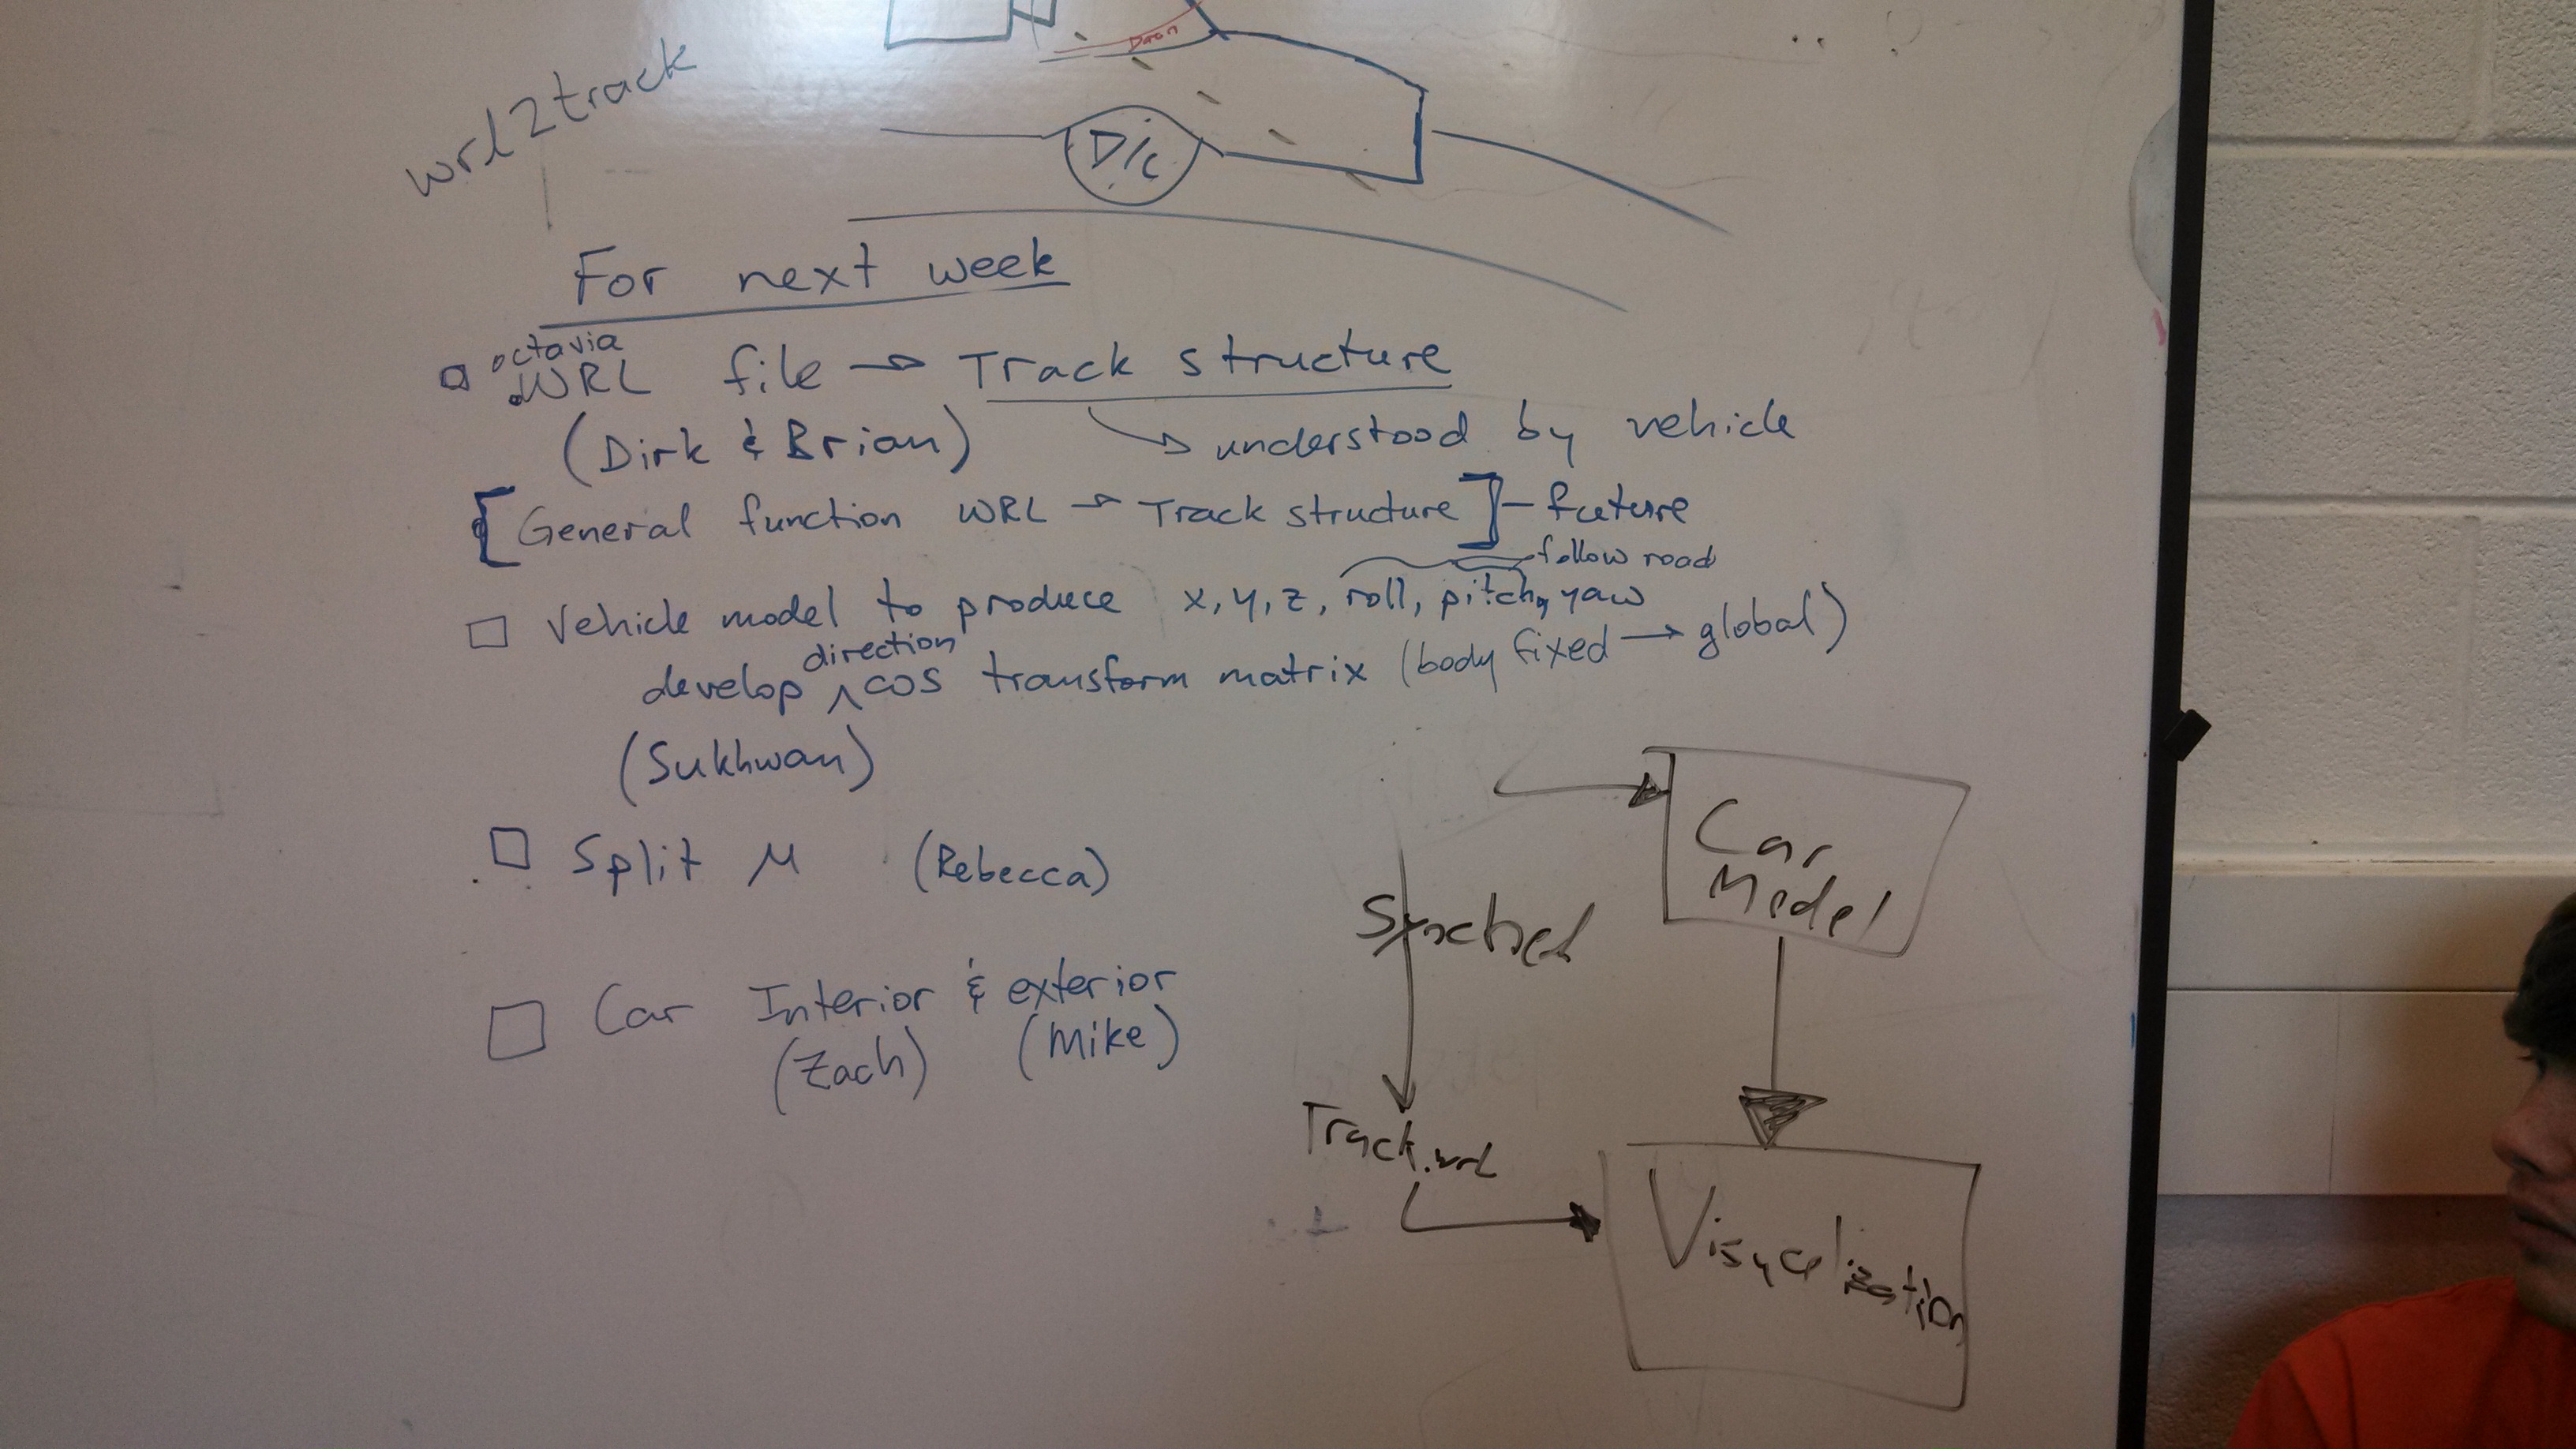 wrl2track
D/c
For next week
octavia
.WRL file → Track structure
(Dirk & Brian) ↳ understood by vehicle
[General function WRL → Track structure] - future
follow road
Vehicle model to produce x, y, z, roll, pitch, yaw
direction
develop ^ cos transform matrix (body fixed → global)
(Sukhwan)
Split μ (Rebecca)
Car Interior & exterior
(Zach) (Mike)
Car
Model
Track.wrl
Visualization